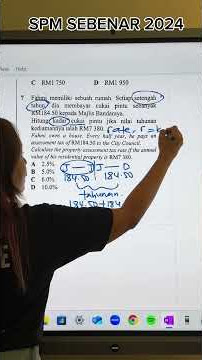 SPM SEBENAR 2024
C RM1 750 D RM1 950
7 Fahmi memiliki sebuah rumah. Setiap setengah
tahun, dia membayar cukai pintu sebanyak
RM184.50 kepada Majlis Bandaraya.
Hitung kadar cukai pintu jika nilai tahunan
kediamannya ialah RM7 380.
rate, r =
Fahmi owns a house. Every half year, he pays an
assessment tax of RM184.50 to the City Council.
Calculate the property assessment tax rate if the annual
value of his residential property is RM7 380.
A 2.5%
B 5.0%
C 6.0%
D 10.0%
J J D
184.50 184.50
tahunan
184.50 + 184